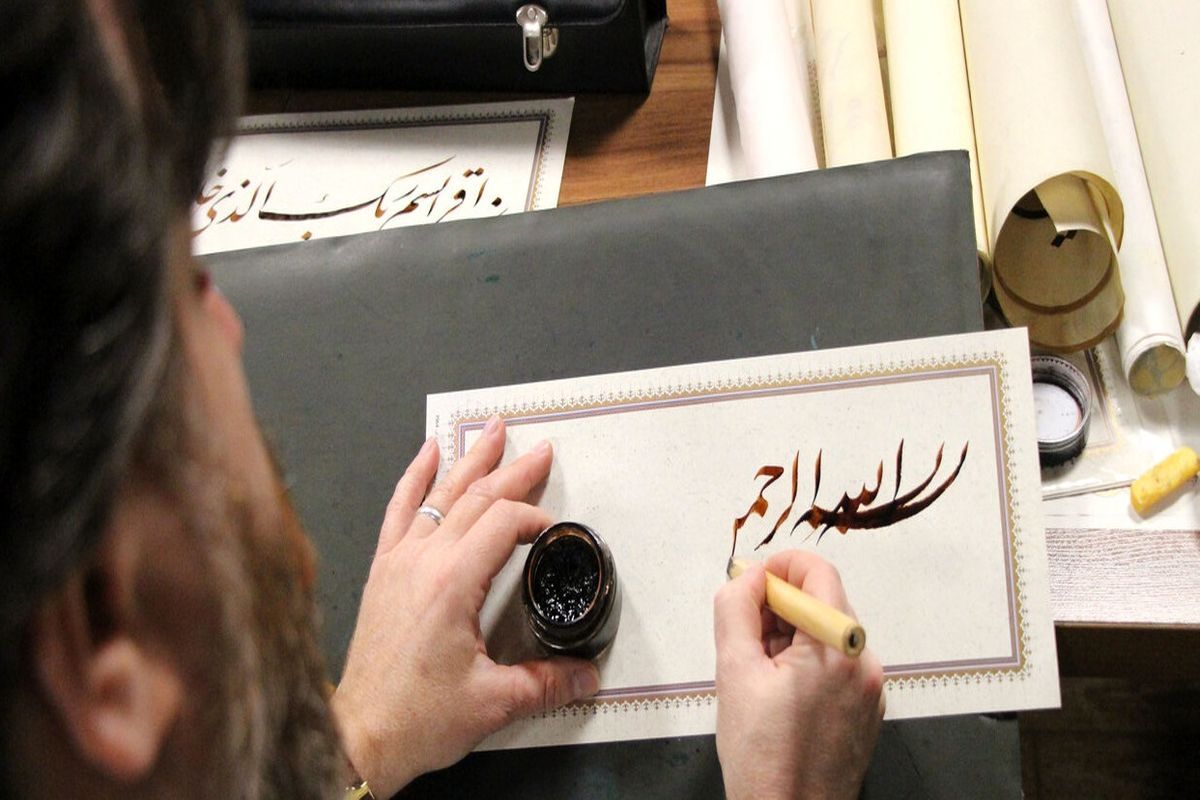 اقرا بسم ربک الذی
بسم الله الرحمـ